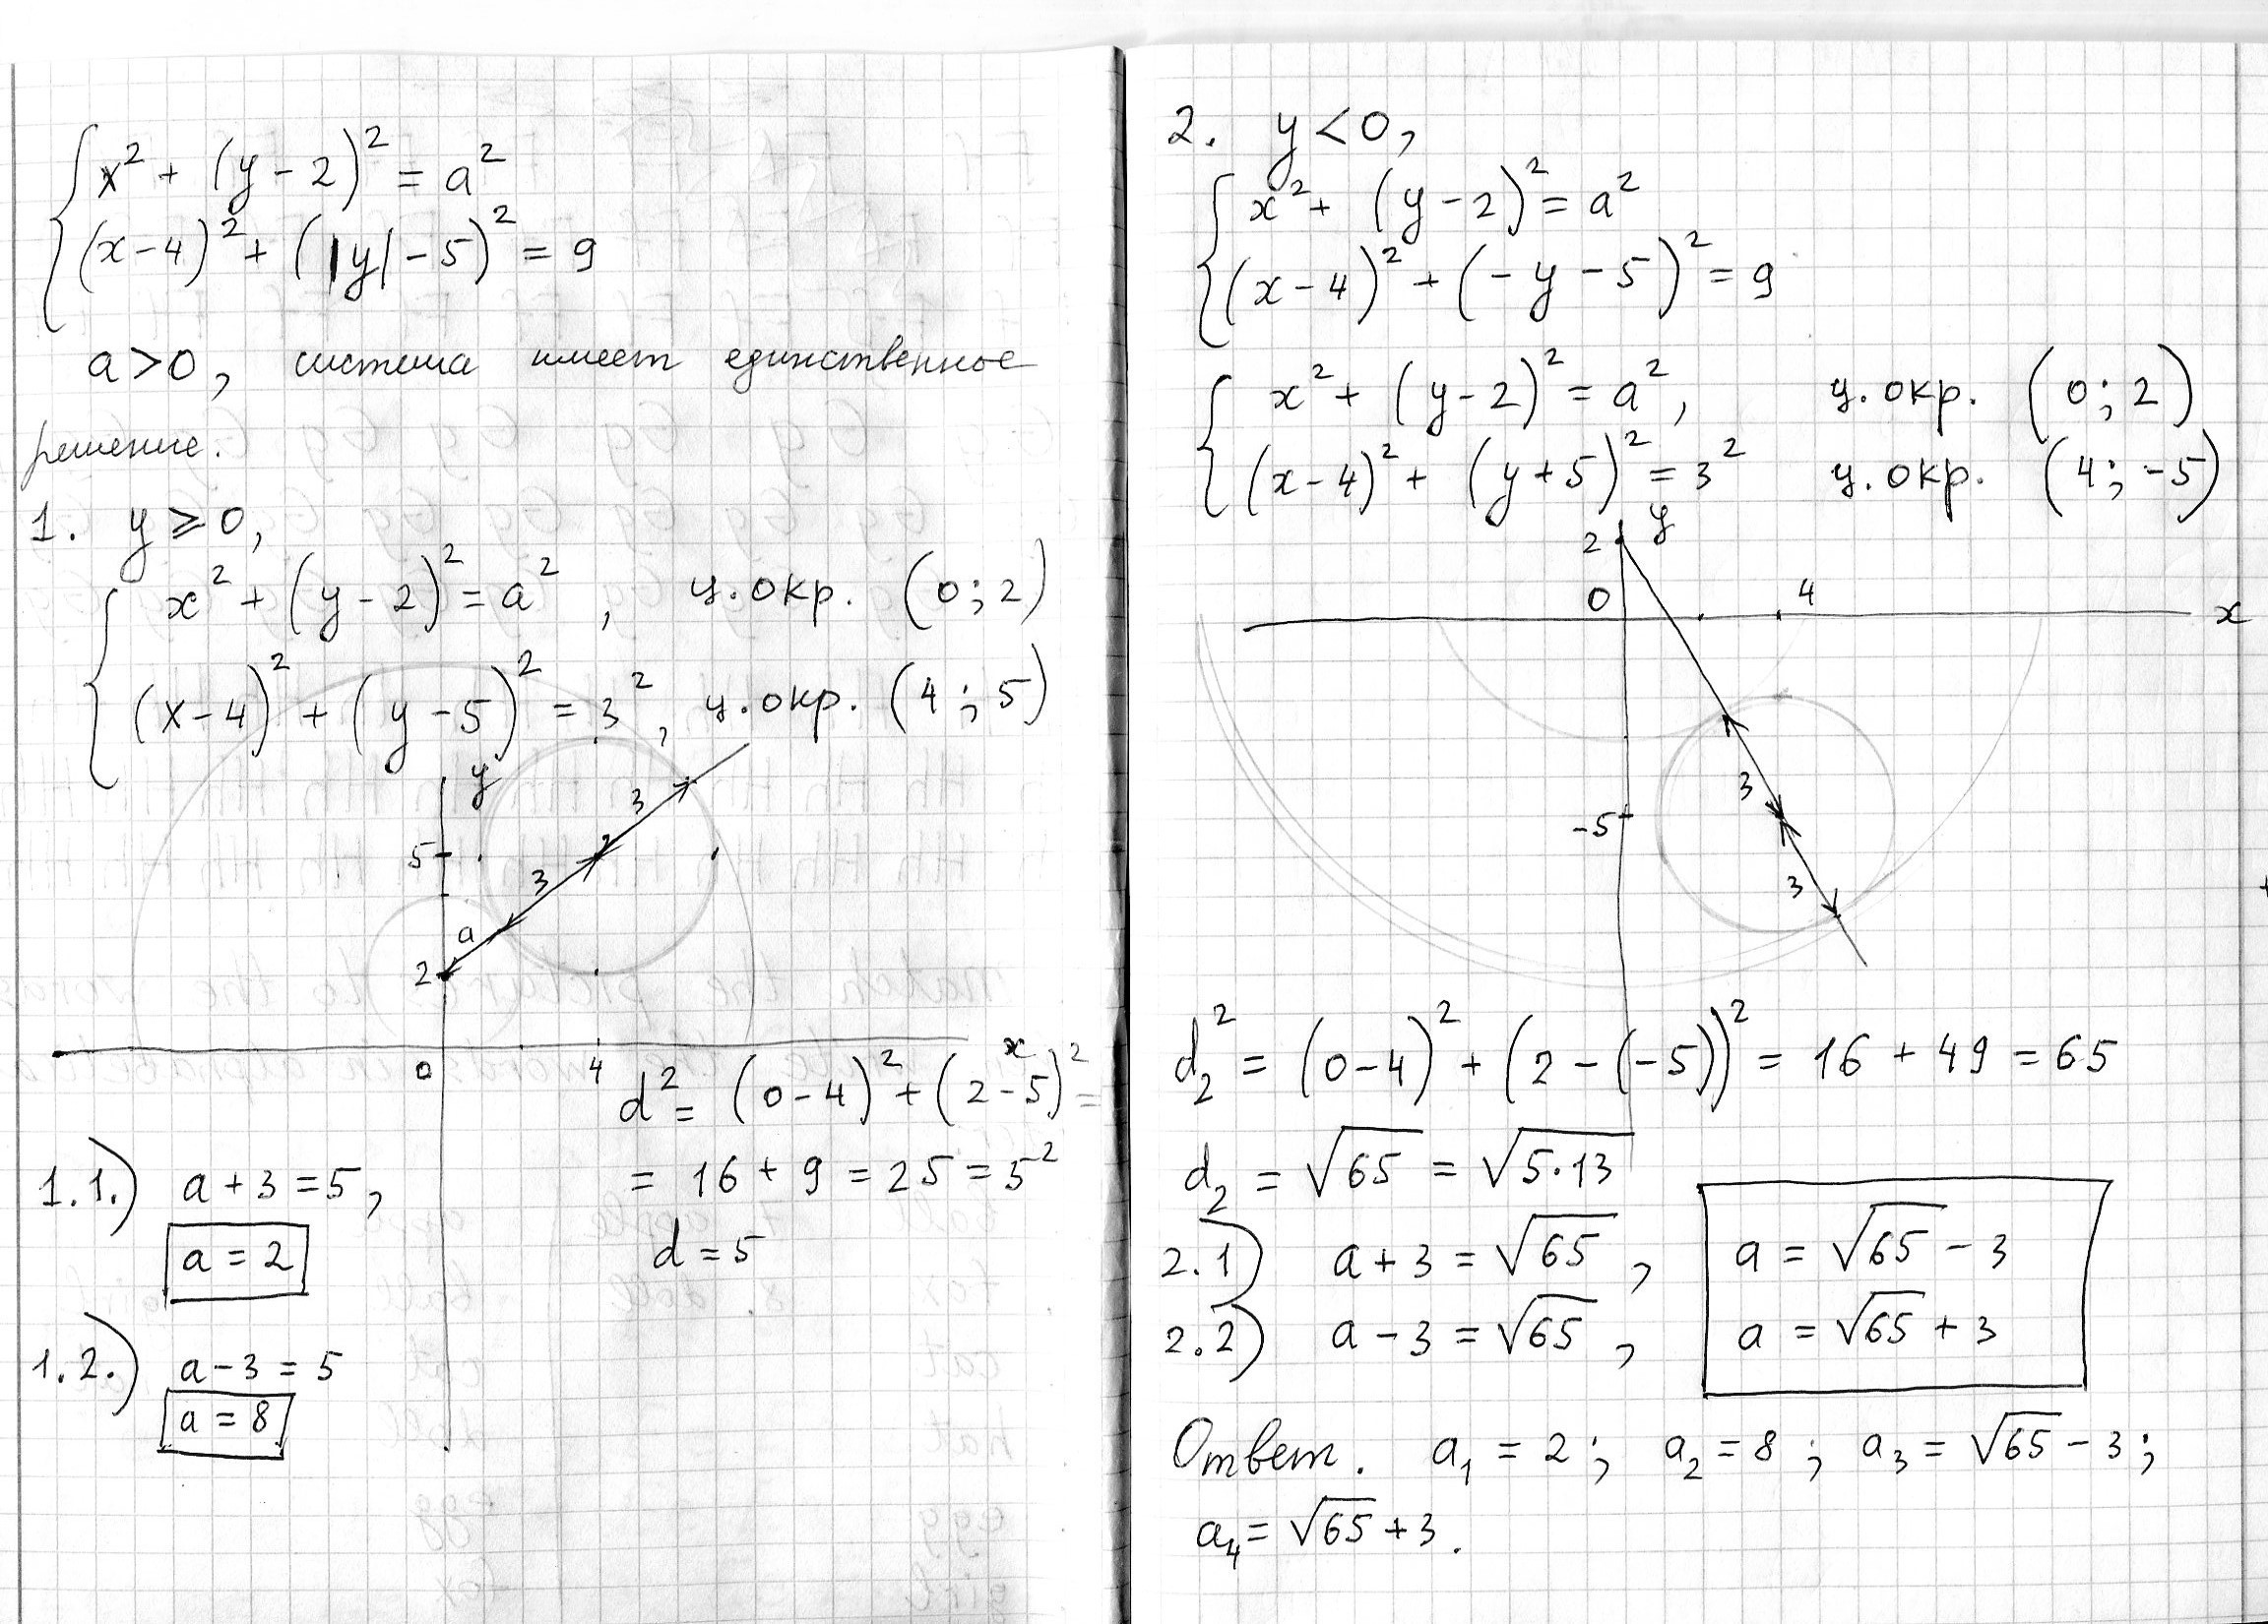 x² + (y-2)² = a²
(x-4)² + (|y|-5)² = 9
a>0, система имеет единственное
решение.
1. y ⩾ 0,
x² + (y-2)² = a², ц.окр. (0; 2)
(x-4)² + (y-5)² = 3², ц.окр. (4; 5)
y
3
5
3
a
2
x
0 4
d² = (0-4)² + (2-5)² =
= 16 + 9 = 25 = 5²
d = 5
1.1.) a+3=5,
a = 2
1.2.) a-3=5
a = 8
2. y<0,
x² + (y-2)² = a²
(x-4)² + (-y-5)² = 9
x² + (y-2)² = a², ц.окр. (0; 2)
(x-4)² + (y+5)² = 3² ц.окр. (4; -5)
y
2
0 4
x
3
-5
3
d₂² = (0-4)² + (2-(-5))² = 16 + 49 = 65
d₂ = √65 = √5·13
2.1) a+3 = √65, a = √65 - 3
2.2) a-3 = √65, a = √65 + 3
Ответ. a₁ = 2; a₂ = 8; a₃ = √65 - 3;
a₄ = √65 + 3.